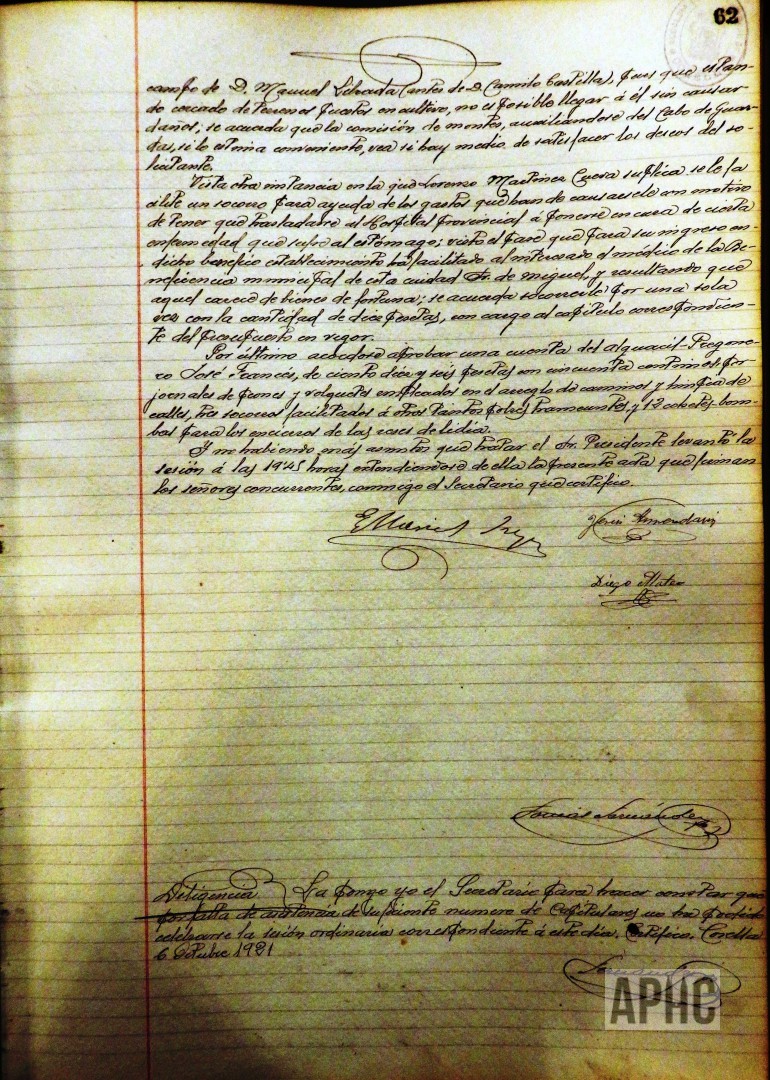 62
campo de D. Manuel Librada (antes de D. Camilo Castilla), pues que estan-
do cercado de terrenos puestos en cultivo, no es posible llegar á él sin causar
daños, se acuerda que la comisión de montes, auxiliandose del Cabo de Guar-
das, si lo estima conveniente, vea si hay medio de satisfacer los deseos del so-
licitante.
Vista otra instancia en la que Lorenzo Martínez Cuera suplica se le fa
cilite un socorro para ayuda de los gastos que han de causarsele con motivo
de tener que trasladarse al Hospital Provincial á ponerse en cura de cierta
enfermedad que sufre al estómago; visto el pase que para su ingreso en
dicho benefico establecimiento ha facilitado al interesado el médico de la Be-
neficencia municipal de esta ciudad Sr. de Miguel, y resultando que
aquel carece de bienes de fortuna; se acuerda socorrerle por una sola
vez con la cantidad de diez pesetas, con cargo al capítulo correspondien-
te del presupuesto en vigor.
Por último acordose aprobar una cuenta del alguacil-Pregone-
ro José Francés, de ciento diez y seis pesetas con cincuenta centimos, por
jornales de peones y volquetes empleados en el arreglo de caminos y limpieza de
calles, tres socorros facilitados á otros tantos pobres transeuntes, y 12 cohetes-bom-
bas para los encierros de las reses de lidia.
Y no habiendo más asuntos que tratar el Sr. Presidente levantó la
sesión á las 19'45 horas extendiendose de ella la presente acta que firman
los señores concurrentes, conmigo el Secretario que certifico.
Diego Mateo
Diligencia La pongo yo el Secretario para hacer constar que
por falta de asistencia de suficiente numero de Capitulares no ha podido
celebrarse la sesión ordinaria correspondiente á este dia. Certifico. Corella
6 Octubre 1921
APHC